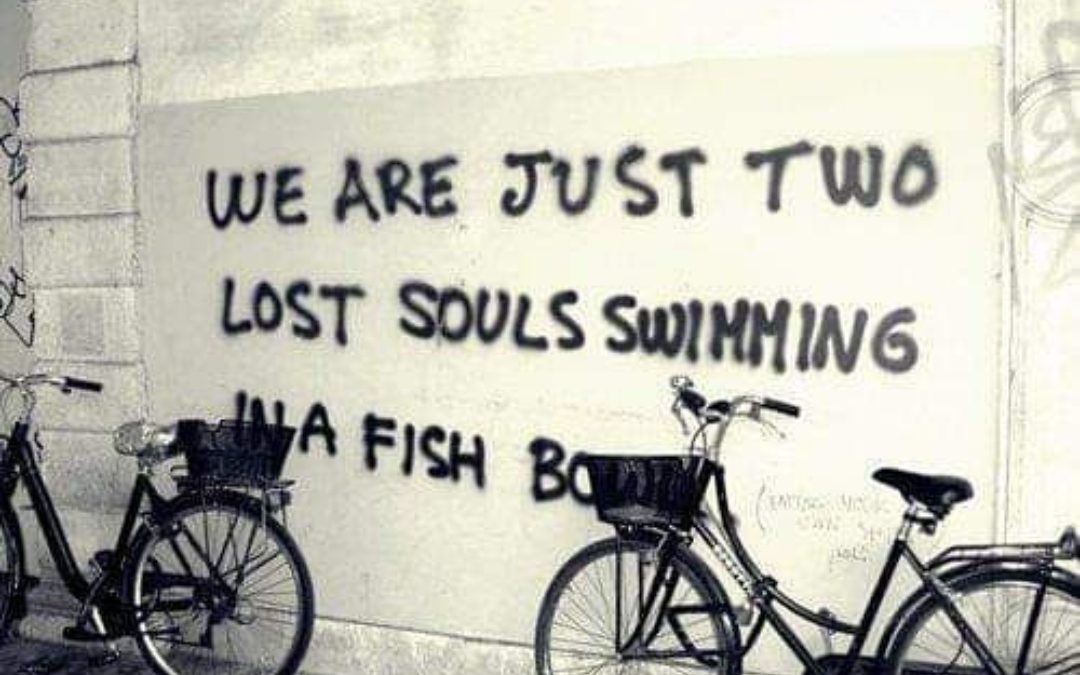 WE ARE JUST TWO
LOST SOULS SWIMMING
IN A FISH